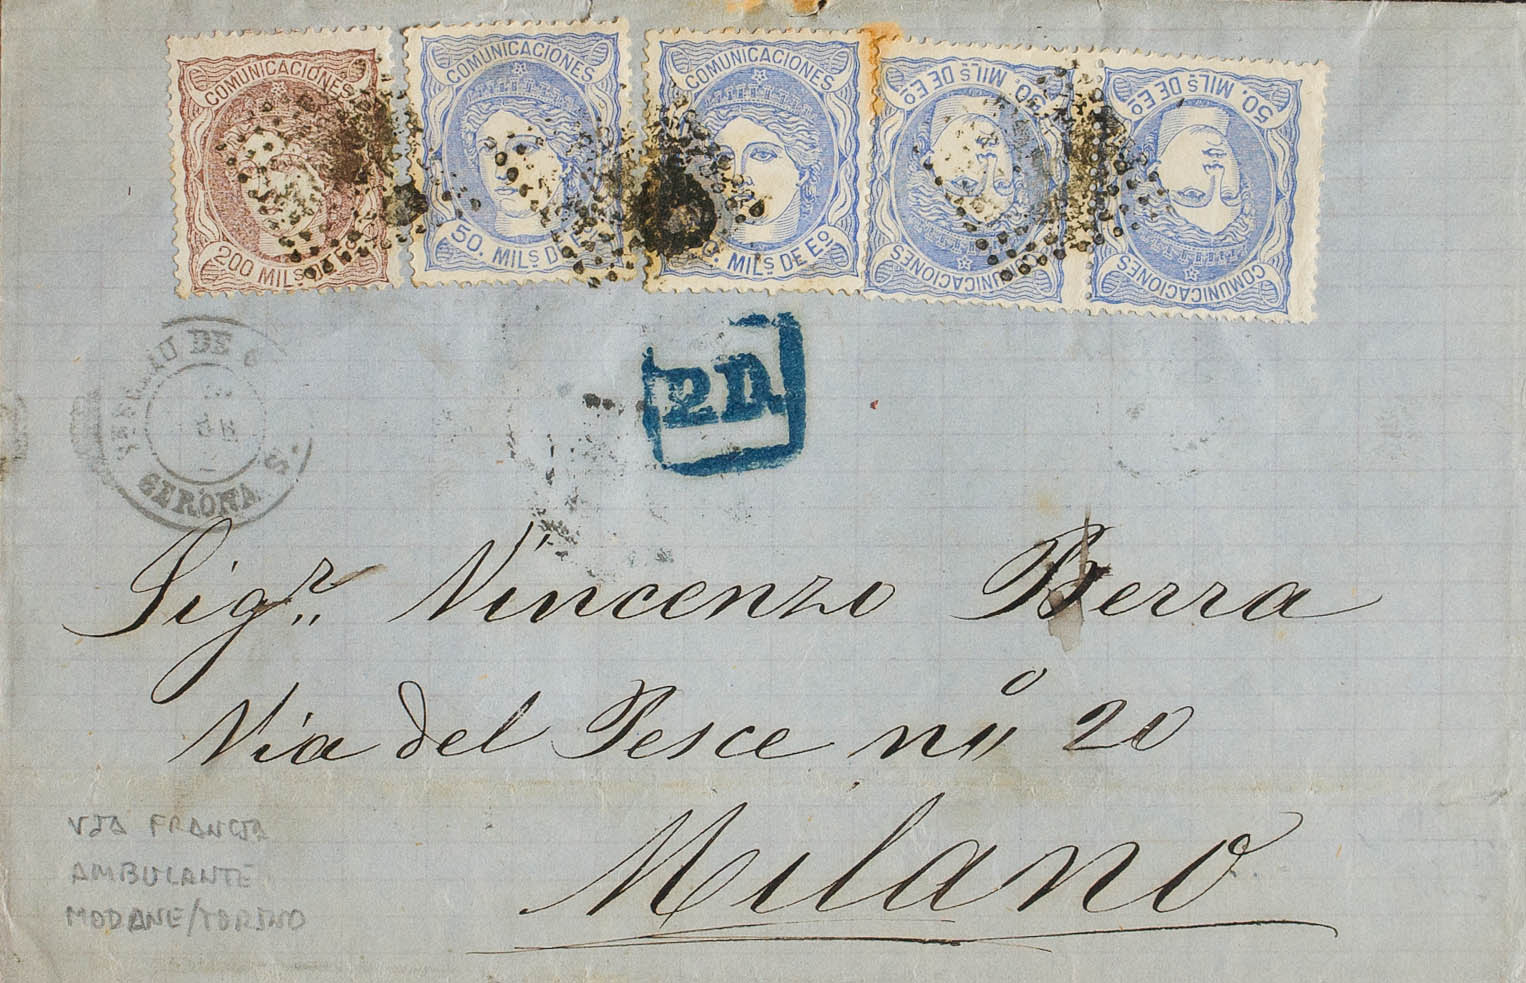 COMUNICACIONES
200 MILS
COMUNICACIONES
50. MILS DE
COMUNICACIONES
MILS DE EO
50. MILS DE EO
COMUNICACIONES
50. MILS DE EO
COMUNICACIONES
DE
GERONA
2D
Sigr. Vincenzo Berra
Via del Pesce no 20
Milano
VIA FRANCIA
AMBULANTE
MODANE/TORINO